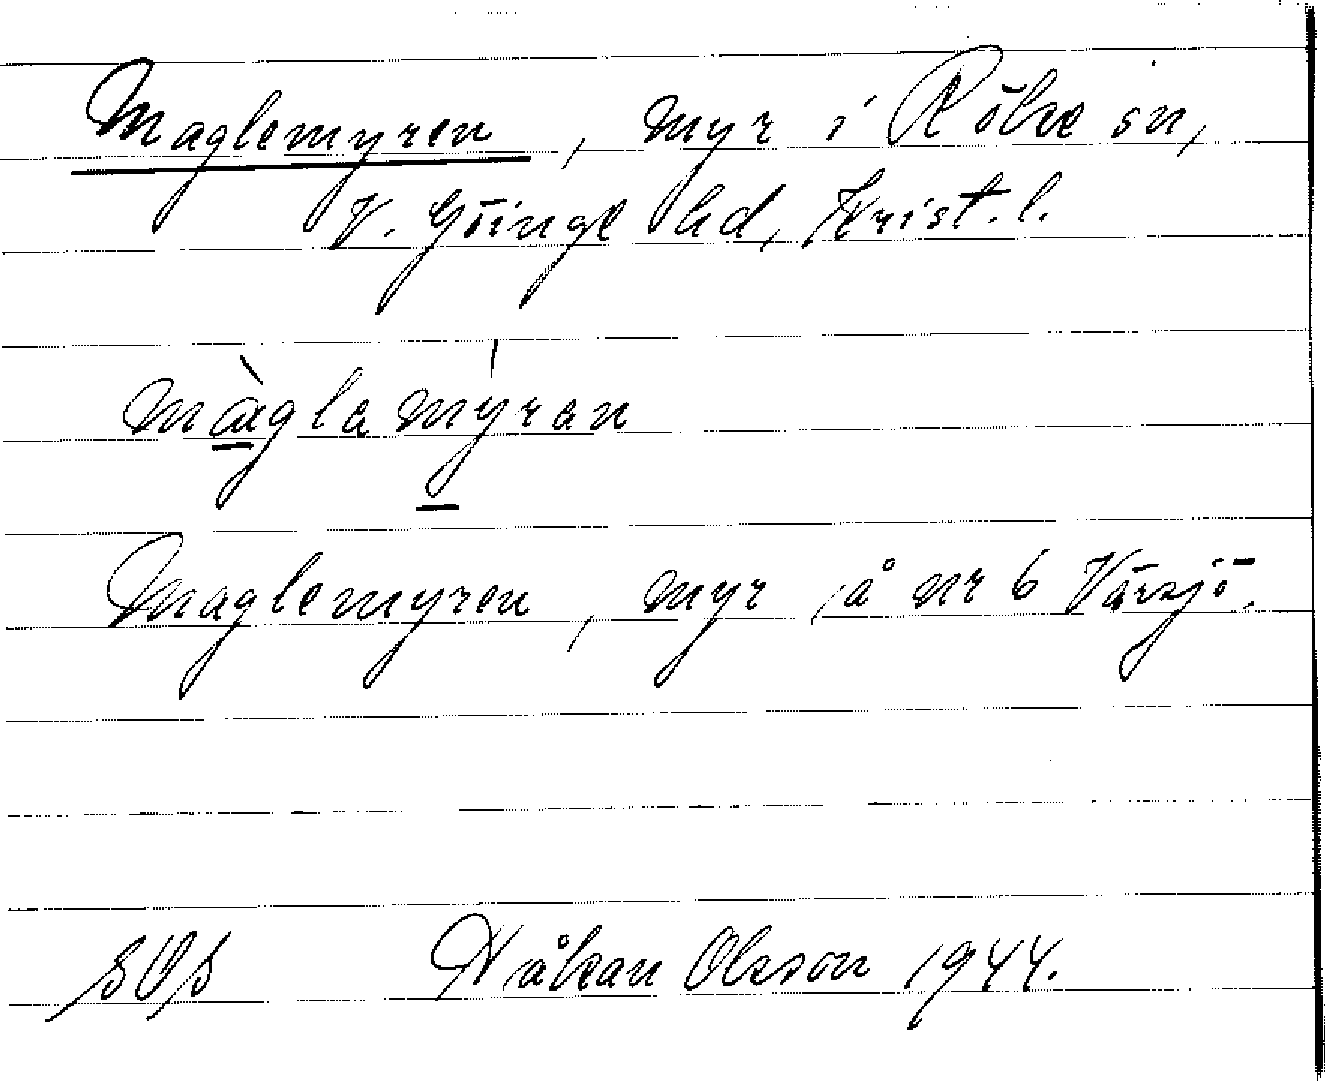 Maglemyren, myr i Röke sn,
V. Göinge hd, Krist. l.
màglamýran
Maglemyren, myr å nr 6 Värsjö.
SOS Håkan Olsson 1944.